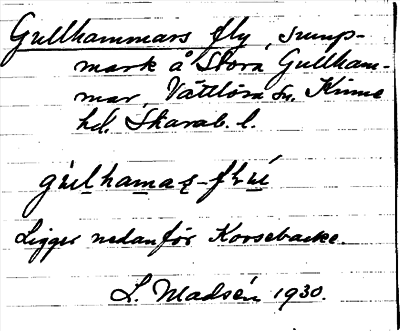 Gullhammars fly, sump-
mark å Stora Gullham-
mar, Vättlösa sn. Kinne
hd. Skarab. l.
gùlhamaʂ-flý
Ligger nedanför Korsebacke.
L. Madsén 1930.